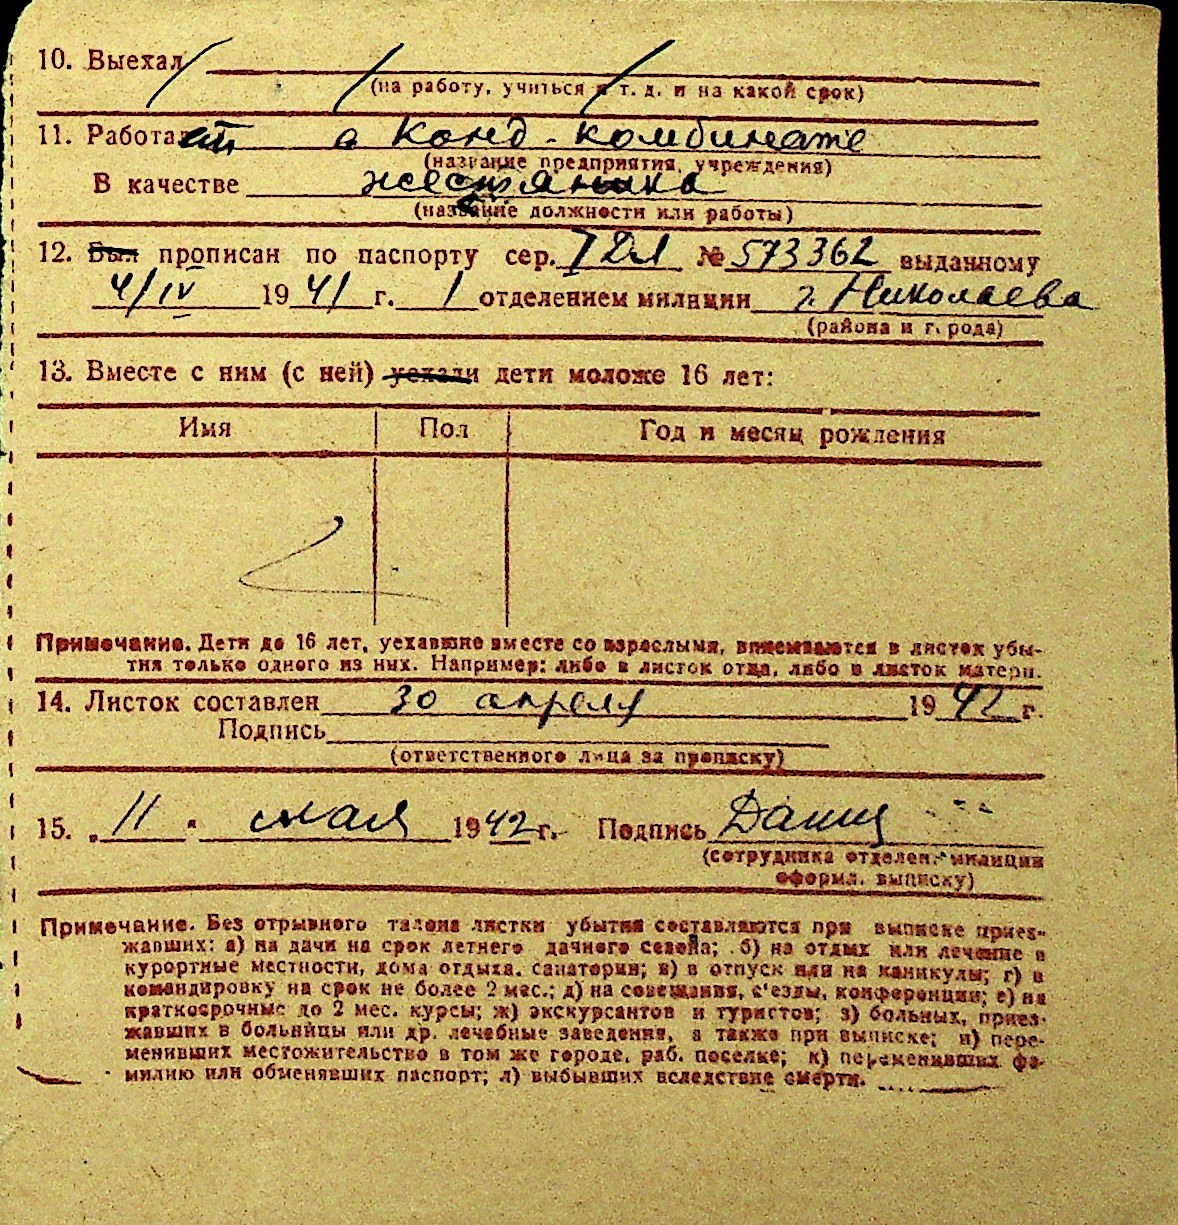 10. Выехал
(на работу, учиться и т. д. и на какой срок)
11. Работает в Конд-комбинате
(название предприятия, учреждения)
В качестве жестяника
(название должности или работы)
12. Был прописан по паспорту сер. № 573362 выданному
4/IV 1941 г. 1 отделением милиции г. Николаева
(района и города)
13. Вместе с ним (с ней) уехали дети моложе 16 лет:
Имя Пол Год и месяц рождения
Примечание. Дети до 16 лет, уехавшие вместе со взрослыми, вписываются в листок убы-
тия только одного из них. Например: либо в листок отца, либо в листок матери.
14. Листок составлен 30 апреля 1942 г.
Подпись
(ответственного лица за прописку)
15. „11" мая 1942 г. Подпись
(сотрудника отделен. милиции
оформл. выписку)
Примечание. Без отрывного талона листки убытия составляются при выписке приез-
жавших: а) на дачи на срок летнего дачного сезона; б) на отдых или лечение в
курортные местности, дома отдыха, санатории; в) в отпуск или на каникулы; г) в
командировку на срок не более 2 мес.; д) на совещания, с'езды, конференции; е) на
краткосрочные до 2 мес. курсы; ж) экскурсантов и туристов; з) больных, приез-
жавших в больницы или др. лечебные заведения, а также при выписке; и) пере-
менивших местожительство в том же городе, раб. поселке; к) переменивших фа-
милию или обменявших паспорт; л) выбывших вследствие смерти.